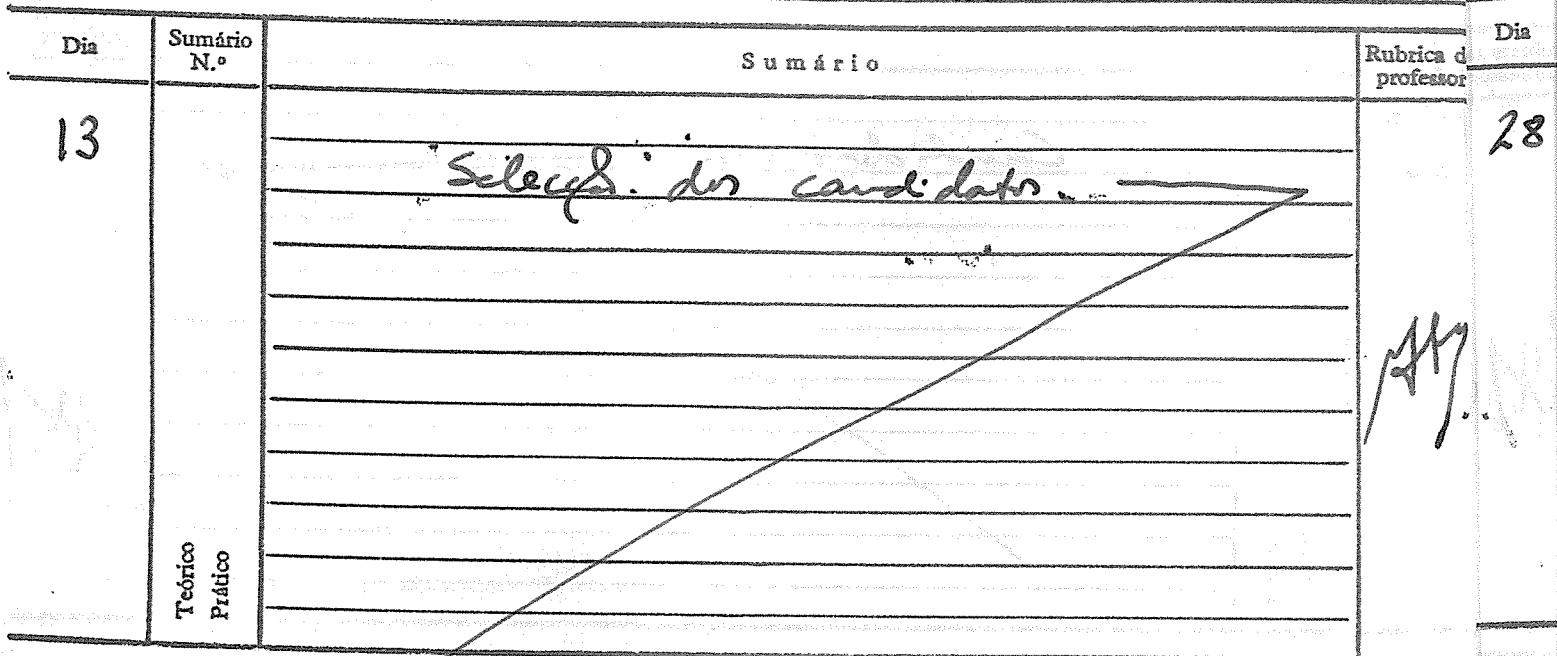 Dia
Sumário
N.º
Sumário
Rubrica d
professor
Dia
13
28
Selecção dos candidatos.
Teórico
Prático